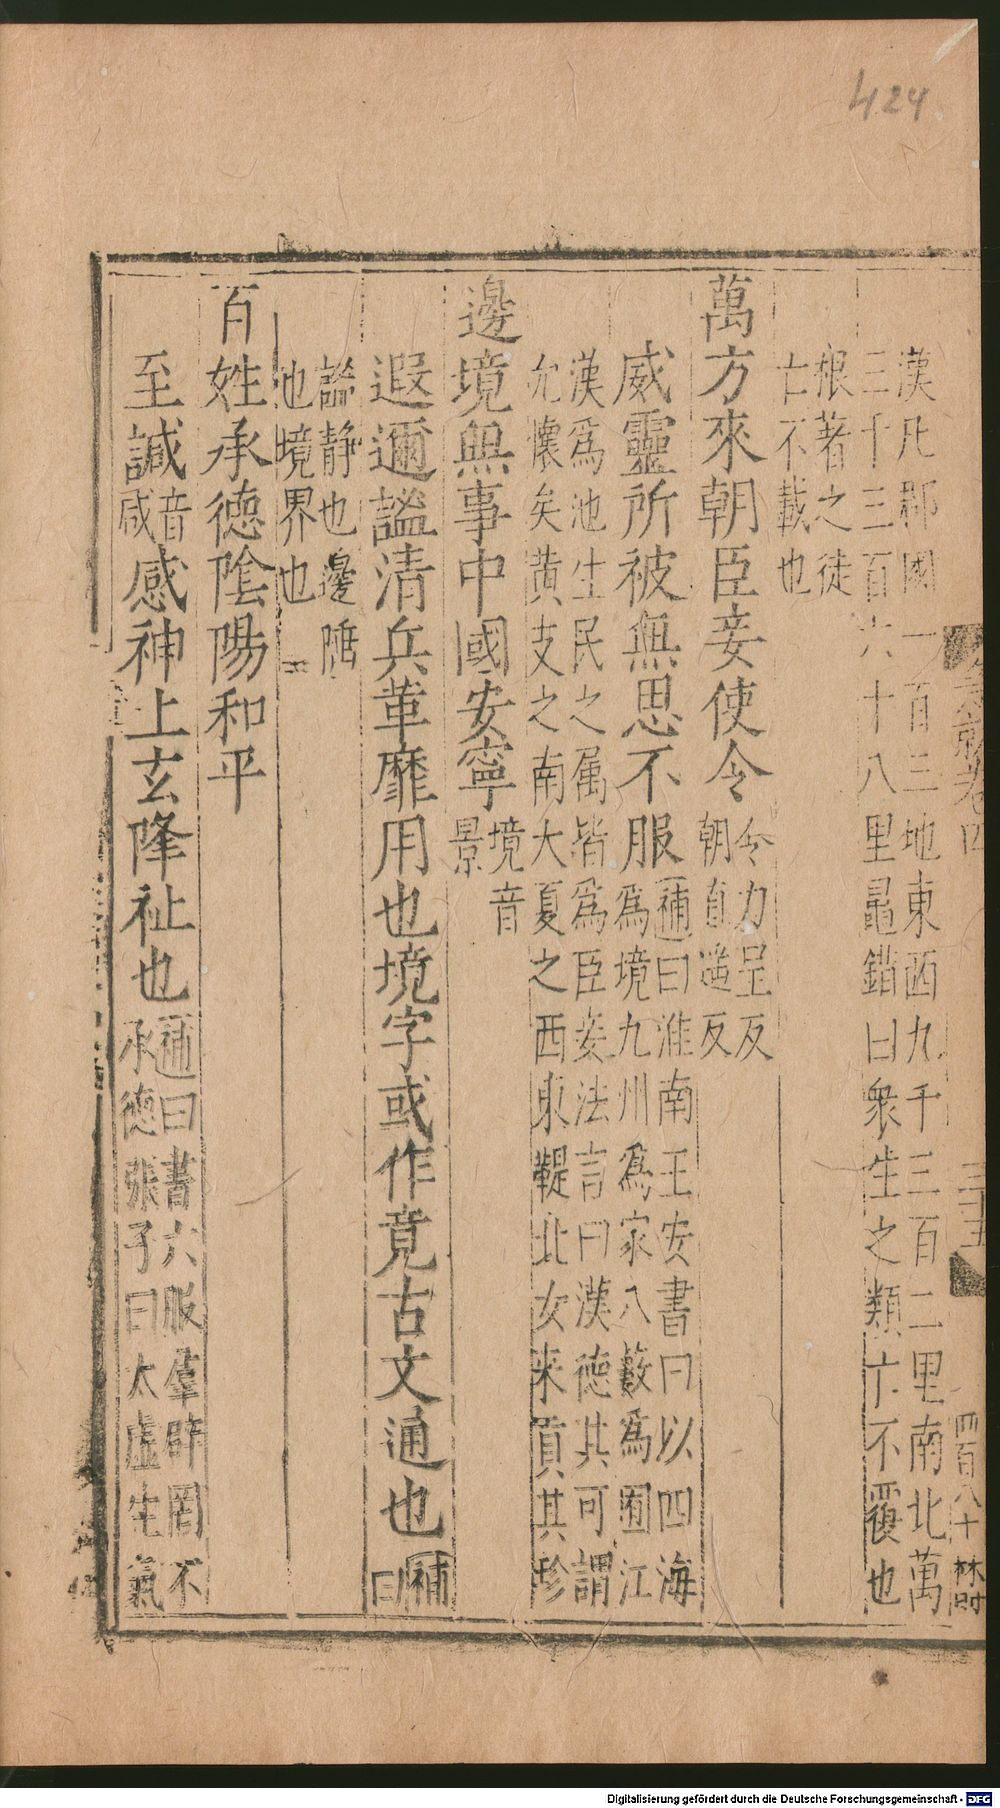 424
漢凡郡國一百三地東西九千三百二里南北萬
三千三百六十八里鼂錯曰衆生之類亡不覆也
根著之徒
亡不載也
萬方來朝臣妾使令
令力呈反
朝直遥反
威靈所被無思不服
補曰淮南王安書曰以四海
爲境九州爲家八藪爲囿江
漢爲池生民之属皆爲臣妾法言曰漢德其可謂
允懷矣黄支之南大夏之西東鞮北女来貢其珍
邊境無事中國安寧
境音
景
遐邇謐清兵革靡用也境字或作竟古文通也
補
曰
謐静也邊陲
也境界也
百姓承德陰陽和平
至諴
音
咸
感神上玄降祉也
補曰書六服羣辟罔不
承德張子曰太虚生氣
急就卷四
三十五
四百八十
Digitalisierung gefördert durch die Deutsche Forschungsgemeinschaft - DFG